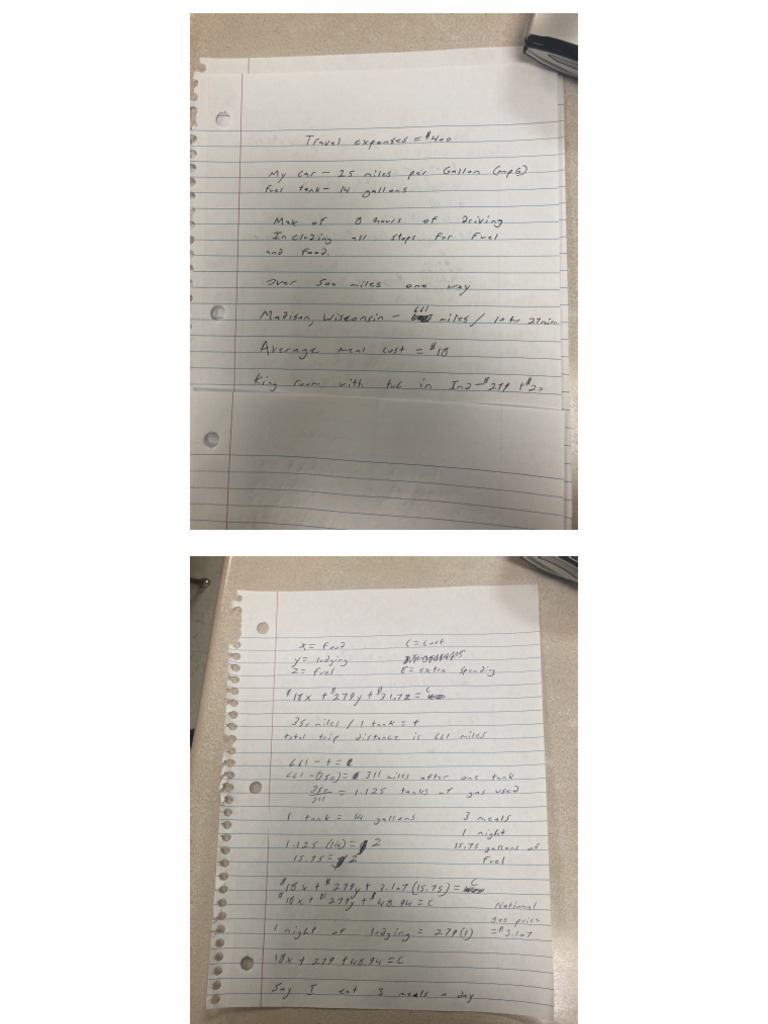 Travel expenses = $400
My car - 25 miles per Gallon (mpG)
fuel tank - 14 gallons
Max of 8 hours of driving
Including all stops for fuel
and food.
over 500 miles one way
661
Madison, Wisconsin - miles / 10 hr 29 min.
Average meal cost = $18
King room with tub in Ind - $279 + $20
x = food C = cost
y = lodging
z = fuel E = extra spending
$18x + $279y + $31.72 = C
350 miles / 1 tank = t
total trip distance is 661 miles
661 - t =
661 - (350) = 311 miles after one tank
350/311 = 1.125 tanks of gas used
1 tank = 14 gallons 3 meals
1 night
1.125 (14) = z 15.75 gallons of
15.75 = z fuel
$18x + $279y + 3.107 (15.75) = C
$18x + $279y + $48.94 = C National
gas price
1 night of lodging = 279(1) = $3.107
18x + 279 + 48.94 = C
Say I eat 3 meals a day